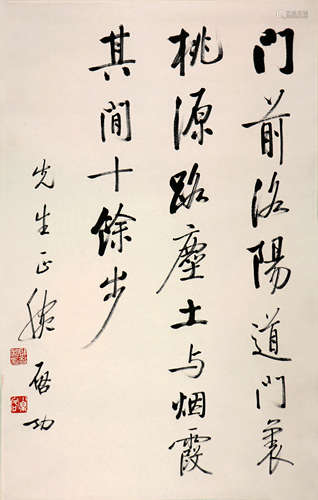 门前洛陽道门裏
桃源路塵土与烟霞
其间十餘步
先生正腕
启功